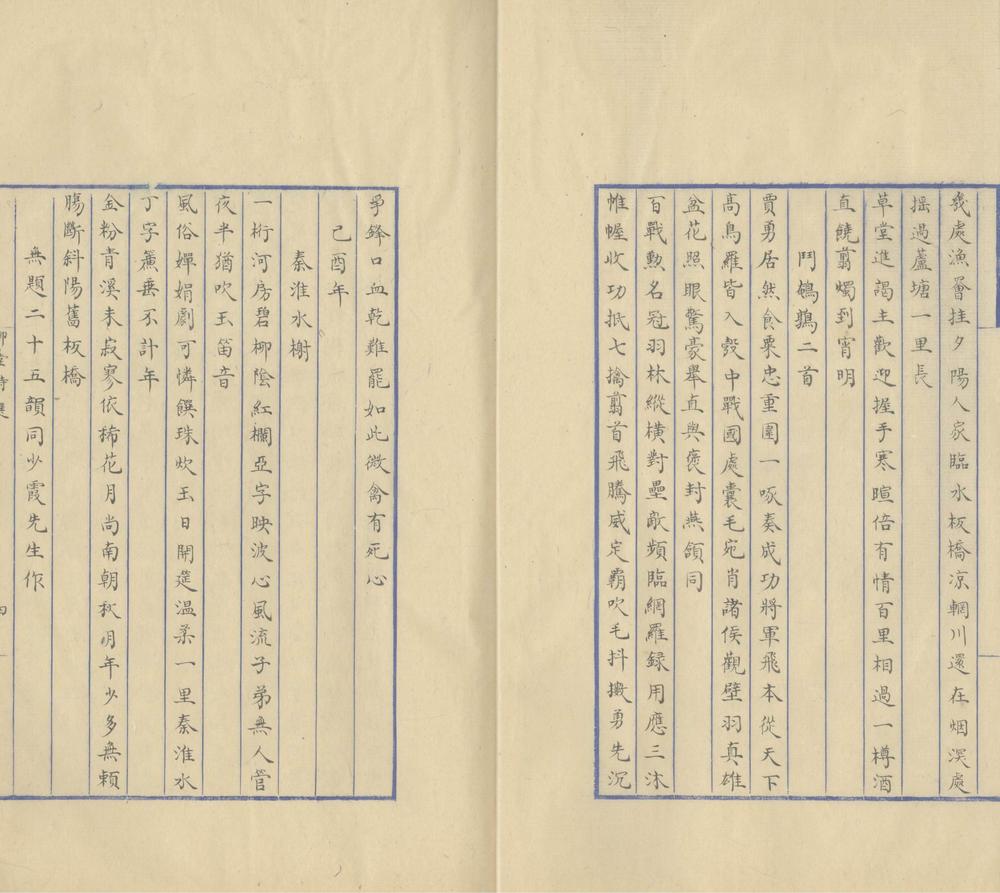 幾處漁罾挂夕陽人家臨水板橋凉輞川還在烟深處
搖過蘆塘一里長
草堂進謁主歡迎握手寒暄倍有情百里相過一樽酒
直饒翦燭到宵明
鬥鵪鶉二首
賈勇居然食粟忠重圍一啄奏成功將軍飛本從天下
高鳥羅皆入彀中戰國處囊毛宛肖諸侯觀壁羽真雄
盆花照眼驚豪舉直與褒封燕頷同
百戰勲名冠羽林縱橫對壘敵頻臨網羅録用應三沐
帷幄收功抵七擒翦首飛騰威定霸吹毛抖擻勇先沉
爭鋒口血乾難罷如此微禽有死心
己酉年
秦淮水榭
一桁河房碧柳陰紅欄亞字映波心風流子弟無人管
夜半猶吹玉笛音
風俗嬋娟劇可憐饌珠炊玉日開筵温柔一里秦淮水
丁字簾垂不計年
金粉青溪未寂寥依稀花月尚南朝秋月年少多無賴
腸斷斜陽舊板橋
無題二十五韻同少霞先生作